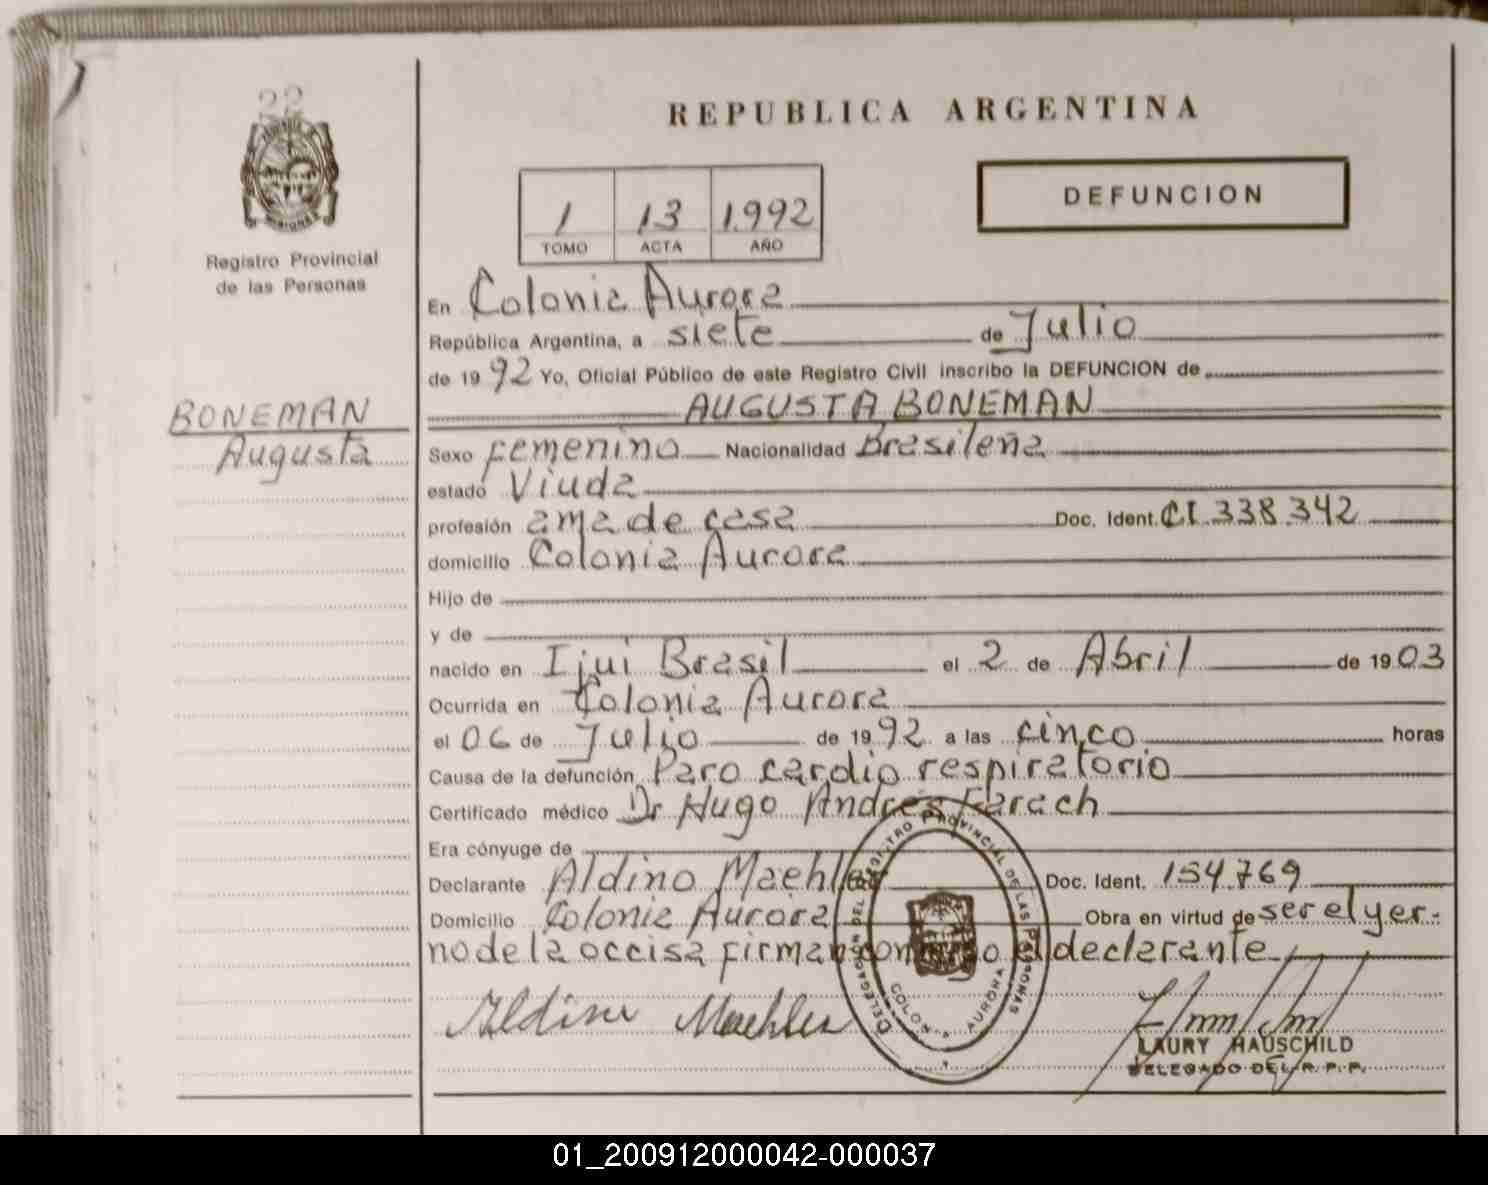 22
MISIONES
Registro Provincial
de las Personas
BONEMAN
Augusta
REPUBLICA ARGENTINA
1 13 1.992
TOMO ACTA AÑO
DEFUNCION
En Colonia Aurora
República Argentina, a siete de Julio
de 1992 Yo, Oficial Público de este Registro Civil inscribo la DEFUNCION de
AUGUSTA BONEMAN
Sexo femenino Nacionalidad Brasileña
estado Viuda
profesión ama de casa Doc. Ident. CI 338.342
domicilio Colonia Aurora
Hijo de
y de
nacido en Ijui Brasil el 2 de Abril de 1903
Ocurrida en Colonia Aurora
el 06 de Julio de 1992 a las cinco horas
Causa de la defunción Paro cardio respiratorio
Certificado médico Dr Hugo Andres Farach
Era cónyuge de
Declarante Aldino Maehler Doc. Ident. 154.769
Domicilio Colonia Aurora Obra en virtud de ser el yer-
no de la occisa firman conmigo el declarante
Aldino Maehler
DELEGACION DEL REGISTRO PROVINCIAL DE LAS PERSONAS
COLONIA AURORA
LAURY HAUSCHILD
DELEGADO DEL R. P. P.
01_200912000042-000037